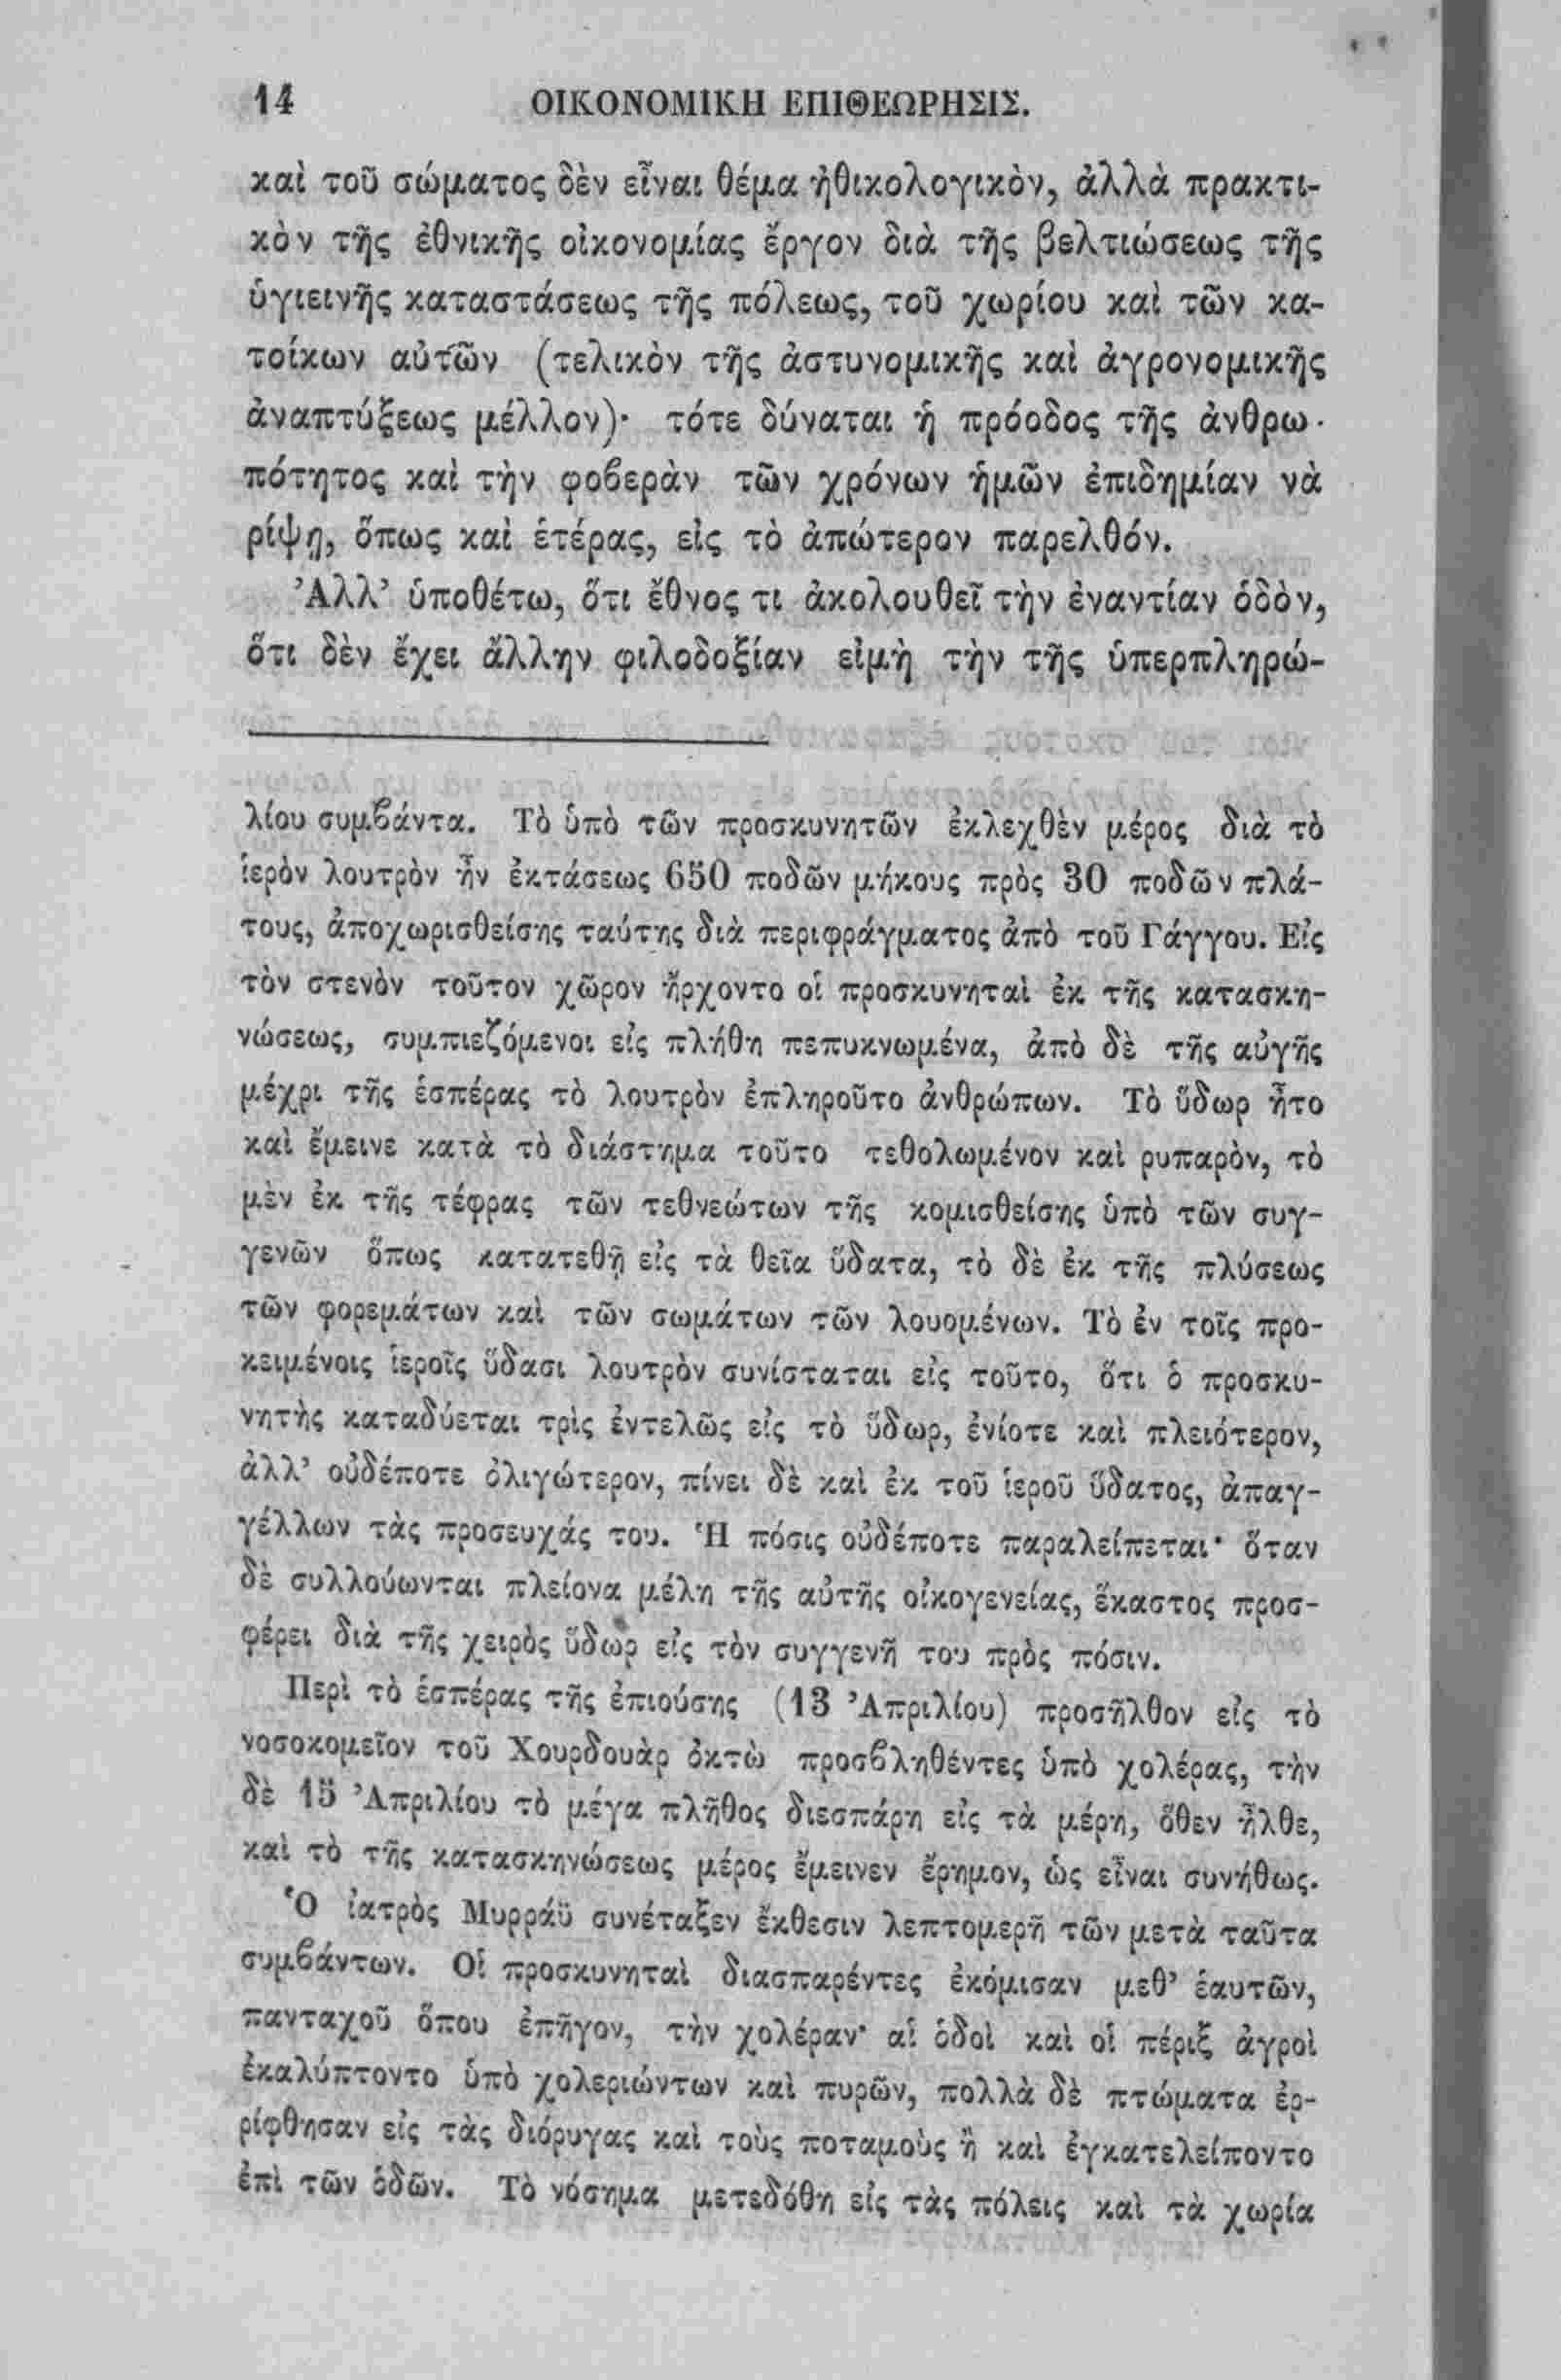 14 ΟΙΚΟΝΟΜΙΚΗ ΕΠΙΘΕΩΡΗΣΙΣ.
καὶ τοῦ σώματος δὲν εἶναι θέμα ἠθικολογικὸν, ἀλλὰ πρακτι-
κὸν τῆς ἐθνικῆς οἰκονομίας ἔργον διὰ τῆς βελτιώσεως τῆς
ὑγιεινῆς καταστάσεως τῆς πόλεως, τοῦ χωρίου καὶ τῶν κα-
τοίκων αὐτῶν (τελικὸν τῆς ἀστυνομικῆς καὶ ἀγρονομικῆς
ἀναπτύξεως μέλλον)· τότε δύναται ἡ πρόοδος τῆς ἀνθρω-
πότητος καὶ τὴν φοβερὰν τῶν χρόνων ἡμῶν ἐπιδημίαν νὰ
ρίψῃ, ὅπως καὶ ἑτέρας, εἰς τὸ ἀπώτερον παρελθόν.
Ἀλλ’ ὑποθέτω, ὅτι ἔθνος τι ἀκολουθεῖ τὴν ἐναντίαν ὁδὸν,
ὅτι δὲν ἔχει ἄλλην φιλοδοξίαν εἰμὴ τὴν τῆς ὑπερπληρώ-
λίου συμβάντα. Τὸ ὑπὸ τῶν προσκυνητῶν ἐκλεχθὲν μέρος διὰ τὸ
ἱερὸν λουτρὸν ἦν ἐκτάσεως 650 ποδῶν μήκους πρὸς 30 ποδῶν πλά-
τους, ἀποχωρισθείσης ταύτης διὰ περιφράγματος ἀπὸ τοῦ Γάγγου. Εἰς
τὸν στενὸν τοῦτον χῶρον ἤρχοντο οἱ προσκυνηταὶ ἐκ τῆς κατασκη-
νώσεως, συμπιεζόμενοι εἰς πλήθη πεπυκνωμένα, ἀπὸ δὲ τῆς αὐγῆς
μέχρι τῆς ἑσπέρας τὸ λουτρὸν ἐπληροῦτο ἀνθρώπων. Τὸ ὕδωρ ἦτο
καὶ ἔμεινε κατὰ τὸ διάστημα τοῦτο τεθολωμένον καὶ ρυπαρὸν, τὸ
μὲν ἐκ τῆς τέφρας τῶν τεθνεώτων τῆς κομισθείσης ὑπὸ τῶν συγ-
γενῶν ὅπως κατατεθῇ εἰς τὰ θεῖα ὕδατα, τὸ δὲ ἐκ τῆς πλύσεως
τῶν φορεμάτων καὶ τῶν σωμάτων τῶν λουομένων. Τὸ ἐν τοῖς προ-
κειμένοις ἱεροῖς ὕδασι λουτρὸν συνίσταται εἰς τοῦτο, ὅτι ὁ προσκυ-
νητὴς καταδύεται τρὶς ἐντελῶς εἰς τὸ ὕδωρ, ἐνίοτε καὶ πλειότερον,
ἀλλ’ οὐδέποτε ὀλιγώτερον, πίνει δὲ καὶ ἐκ τοῦ ἱεροῦ ὕδατος, ἀπαγ-
γέλλων τὰς προσευχάς του. Ἡ πόσις οὐδέποτε παραλείπεται· ὅταν
δὲ συλλούωνται πλείονα μέλη τῆς αὐτῆς οἰκογενείας, ἕκαστος προσ-
φέρει διὰ τῆς χειρὸς ὕδωρ εἰς τὸν συγγενῆ του πρὸς πόσιν.
Περὶ τὸ ἑσπέρας τῆς ἐπιούσης (13 Ἀπριλίου) προσῆλθον εἰς τὸ
νοσοκομεῖον τοῦ Χουρδουὰρ ὀκτὼ προσβληθέντες ὑπὸ χολέρας, τὴν
δὲ 15 Ἀπριλίου τὸ μέγα πλῆθος διεσπάρη εἰς τὰ μέρη, ὅθεν ἦλθε,
καὶ τὸ τῆς κατασκηνώσεως μέρος ἔμεινεν ἔρημον, ὡς εἶναι συνήθως.
Ὁ ἰατρὸς Μυρράϋ συνέταξεν ἔκθεσιν λεπτομερῆ τῶν μετὰ ταῦτα
συμβάντων. Οἱ προσκυνηταὶ διασπαρέντες ἐκόμισαν μεθ’ ἑαυτῶν,
πανταχοῦ ὅπου ἐπῆγον, τὴν χολέραν· αἱ ὁδοὶ καὶ οἱ πέριξ ἀγροὶ
ἐκαλύπτοντο ὑπὸ χολεριώντων καὶ πυρῶν, πολλὰ δὲ πτώματα ἐρ-
ρίφθησαν εἰς τὰς διόρυγας καὶ τοὺς ποταμοὺς ἢ καὶ ἐγκατελείποντο
ἐπὶ τῶν ὁδῶν. Τὸ νόσημα μετεδόθη εἰς τὰς πόλεις καὶ τὰ χωρία